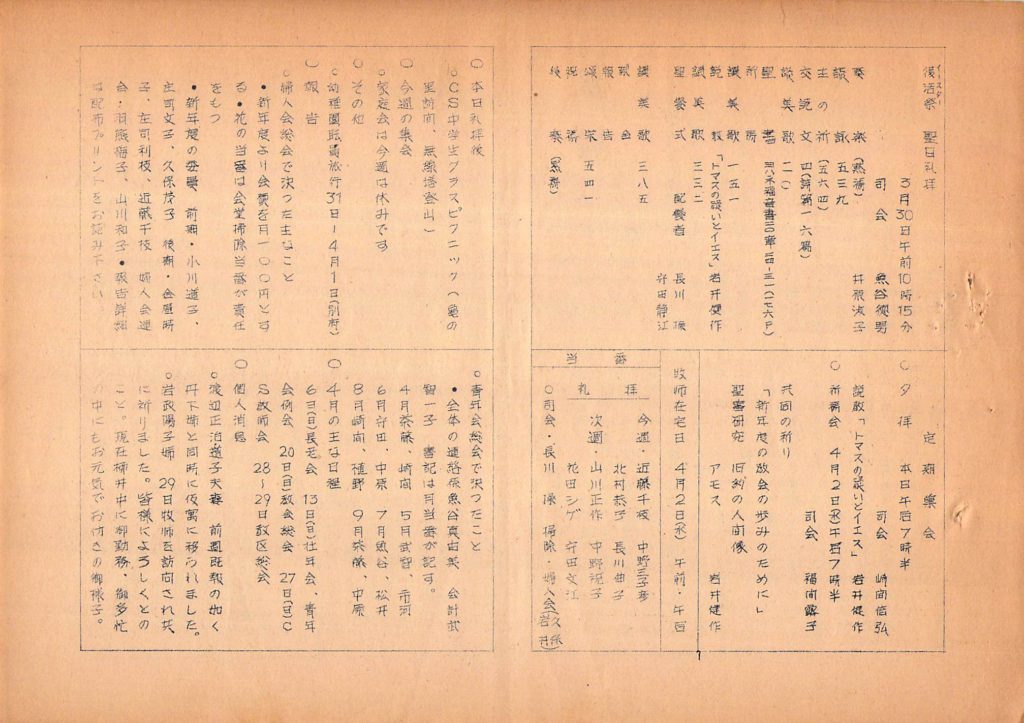 イースター
復活祭 聖日礼拝
3月30日午前10時15分
司会 魚谷徳男
奏楽(黙祷) 井原波子
頌詠 五三九
主の祈(五六四)
交読文 四(詩第一六篇)
讃美歌 二一〇
聖書
祈祷
讃美歌 一五一
説教「トマスの疑いとイエス」岩井健作
讃美歌 三三二
聖餐式 配餐者 長川操
守田静江
讃美歌 三八五
献金
報告
頌栄 五四一
祝祷
後奏(黙祷)
定期集会
○夕拝 本日午后7時半
司会 崎間信弘
説教「トマスの疑いとイエス」岩井健作
○祈祷会 4月2日(水)午后7時半
司会 福間露子
共同の祈り
「新年度の教会の歩みのために」
聖書研究 旧約の人間像
アモス 岩井健作
牧師在宅日 4月2日(水) 午前・午后
当番
礼拝
今週・近藤千枝 中野三子彦
北村恭子 長川曲子
次週・山川正作 中野祝子
花田シゲ 守田文江
○司会・長川操 掃除・婦人会(久保 岩井)
○本日礼拝後
○CS中学生クラスピクニック(亀の
里訪問、無線塔登山)
○今週の集会
○家庭会は今週は休みです
○その他
○幼稚園職員旅行31日-4月1日(別府)
○報告
○婦人会総会で決つた主なこと
・新年度より会費を月一〇〇円とす
る・花の当番は会堂掃除当番が責任
をもつ
・新年度の委員 前期・小川道子、
庄司文子、久保茂子 後期・金屋時
子、左司利枝、近藤千枝 婦人会連
会・羽熊梅子、山川和子・報告詳細
は配布プリントをお読み下さい。
○青年会総会で決つたこと
・全体の連絡係魚谷真由美 会計武
智一子 書記は月当番が記す。
4月斎藤、崎間 5月武智、市河
6月守田、中原 7月魚谷、松井
8月崎間、植野 9月斎藤、中原
○4月の主な日程
6日(日)長老会 13日(日)壮年会、青年
会例会 20日(日)教会総会 27日(日)C
S教師会 28〜29日教区総会
○個人消息
○渡辺正治・道子夫妻 前週既報の如く
丹下姉と同所に仮寓に移られました。
○岩政陽子姉 29日牧師を訪問され共
に祈りました。皆様によろしくとの
こと。現在柳井中に御勤務、御多忙
の中にもお元気でお働きの御様子。